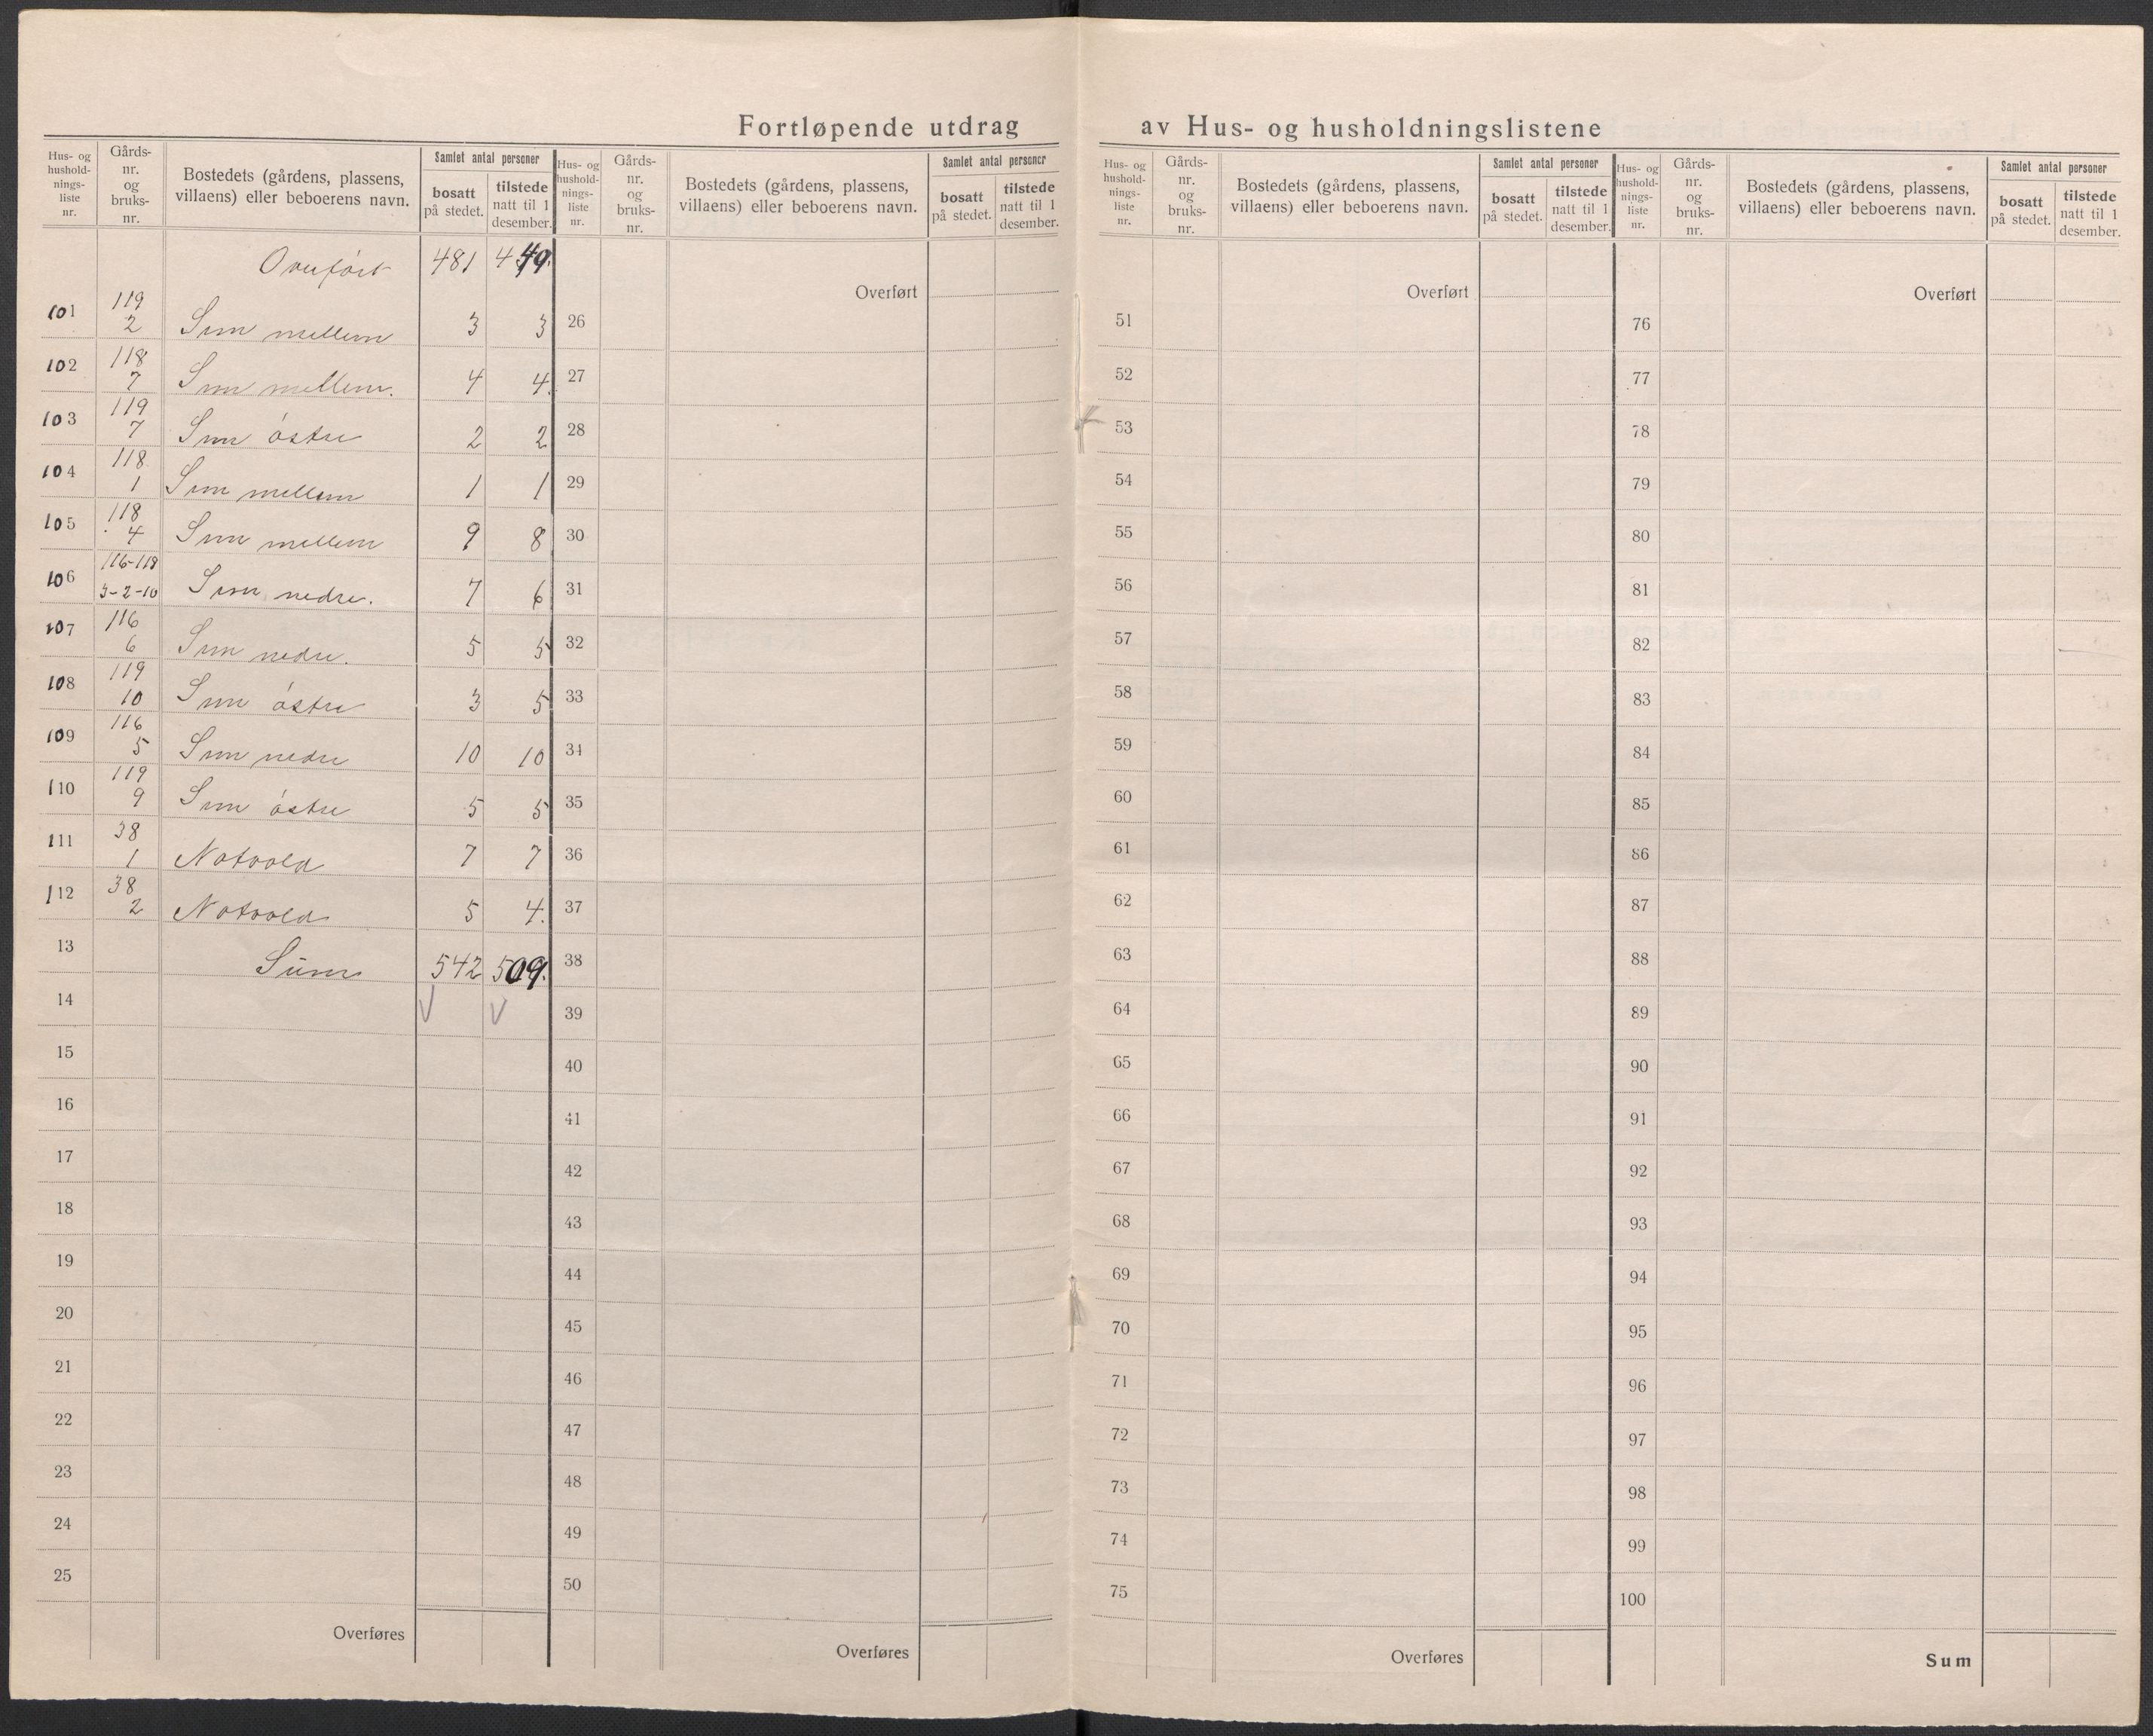 Fortløpende utdrag av Hus- og husholdningslistene
Hus- og hushold- nings- liste nr. | Gårds- nr. og bruks- nr. | Bostedets (gårdens, plassens, villaens) eller beboerens navn. | Samlet antal personer | bosatt på stedet. | tilstede natt til 1 desember.
Overført 481 449.
101 119 2 Sem mellem 3 3
102 118 7 Sem mellem. 4 4.
103 119 7 Sem østre 2 2
104 118 1 Sem mellem 1 1
105 118 4 Sem mellem 9 8
106 116-118 3-2-10 Sem nedre. 7 6
107 116 6 Sem nedre. 5 5
108 119 10 Sem østre 3 5
109 116 5 Sem nedre 10 10
110 119 9 Sem østre 5 5
111 38 1 Notvold 7 7
112 38 2 Notvold 5 4.
13 Sum 542 509.
14 V V
15
16
17
18
19
20
21
22
23
24
25
Overføres
Hus- og hushold- nings- liste nr. | Gårds- nr. og bruks- nr. | Bostedets (gårdens, plassens, villaens) eller beboerens navn. | Samlet antal personer | bosatt på stedet. | tilstede natt til 1 desember.
Overført
26
27
28
29
30
31
32
33
34
35
36
37
38
39
40
41
42
43
44
45
46
47
48
49
50
Overføres
Hus- og hushold- nings- liste nr. | Gårds- nr. og bruks- nr. | Bostedets (gårdens, plassens, villaens) eller beboerens navn. | Samlet antal personer | bosatt på stedet. | tilstede natt til 1 desember.
Overført
51
52
53
54
55
56
57
58
59
60
61
62
63
64
65
66
67
68
69
70
71
72
73
74
75
Overføres
Hus- og hushold- nings- liste nr. | Gårds- nr. og bruks- nr. | Bostedets (gårdens, plassens, villaens) eller beboerens navn. | Samlet antal personer | bosatt på stedet. | tilstede natt til 1 desember.
Overført
76
77
78
79
80
81
82
83
84
85
86
87
88
89
90
91
92
93
94
95
96
97
98
99
100
Sum